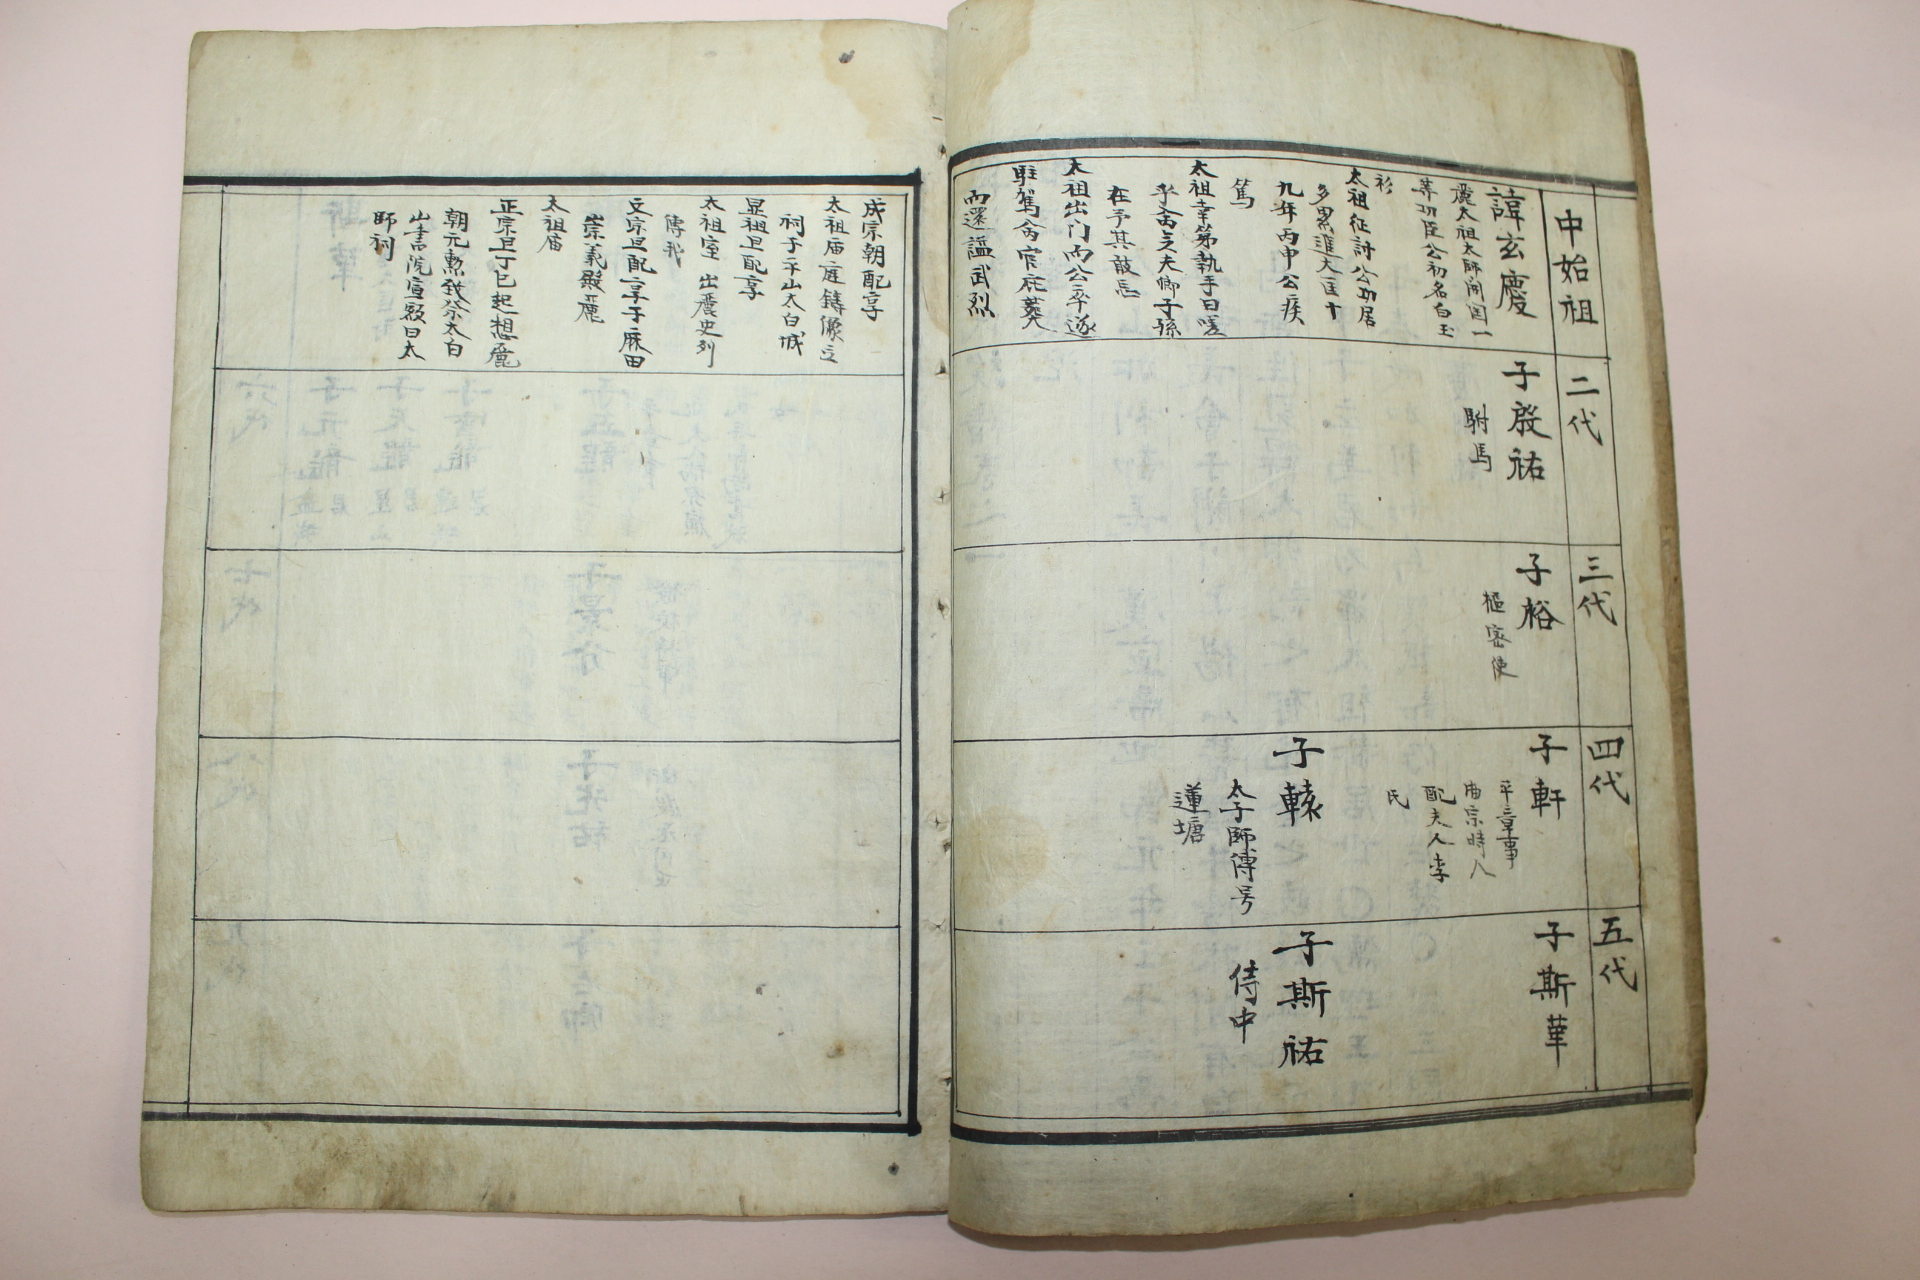 中始祖
諱玄慶
麗太祖太師開国一
等功臣公初名白玉
衫
太祖征討公功居
多累進大匡十
九年丙申公疾
篤
太祖幸第執手曰嗟
乎斎之夫卿子孫
在予其敢忘
太祖出门而公卒遂
駐駕命官庇葬
而還謚武烈
二代
子殷祐
駙馬
三代
子裕
樞密使
四代
子軒
平章事
宗時人
配夫人李
氏
子轅
太子師傅号
蓮塘
五代
子斯華
子斯祐
侍中
成宗朝配享
太祖庙庭鋳像立
祠于平山太白城
显祖旦配享
太祖室 出麗史列
傳我
文宗旦配享于麻田
崇義殿麗
太祖庙
正宗旦丁巳起想麗
朝元勲致祭太白
山書院宣額曰太
師祠